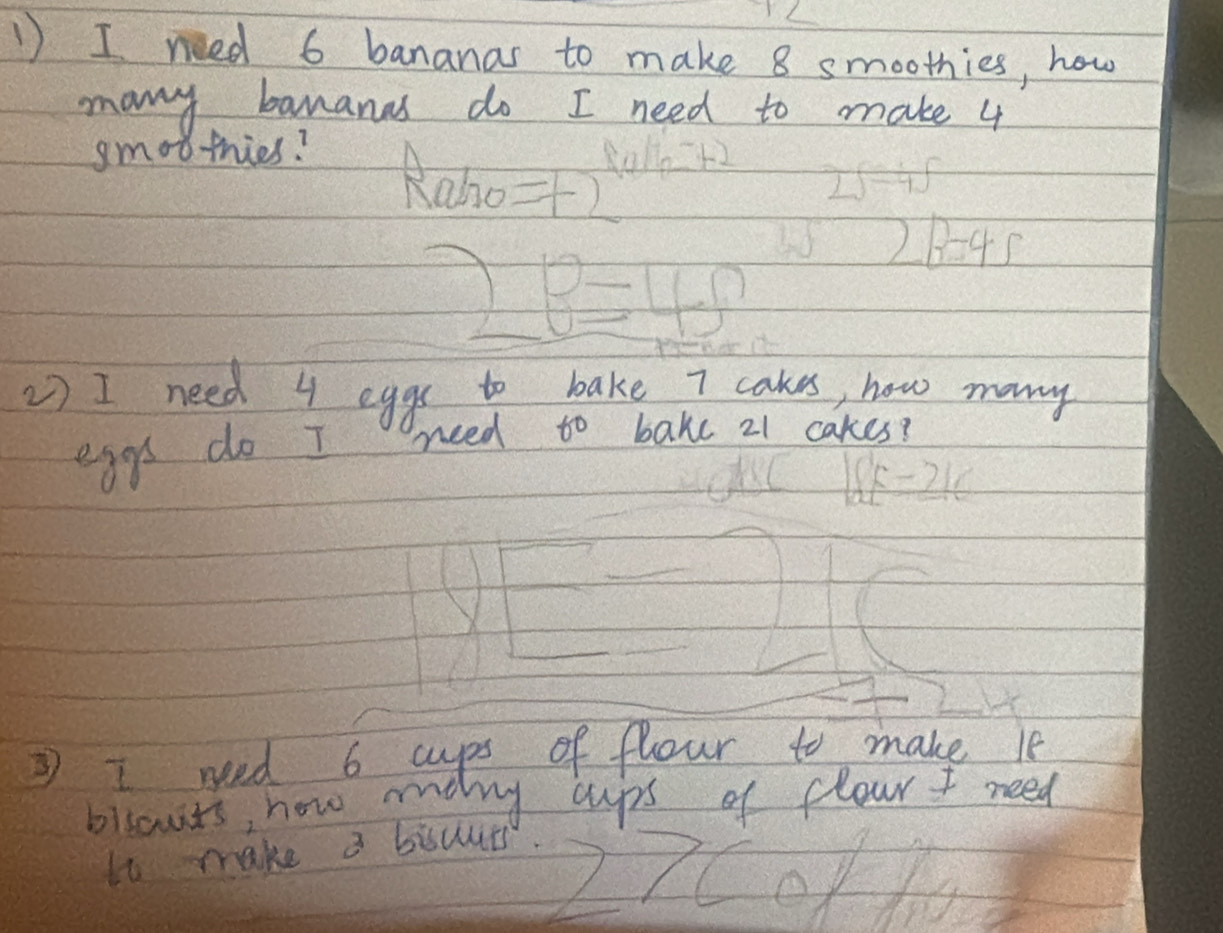 1) I need 6 bananas to make 8 smoothies, how
many bananas do I need to make 4
smoothies?
Ratio=+2
2S=4S
2B=4S
2B=4S
2) I need 4 eggs to bake 7 cakes, how many
eggs do I need to bake 21 cakes?
18E=21C
18E=21C
3) I need 6 cups of flour to make 18
biscuits, how many cups of flour I need
to make 3 biscuits.
27C of